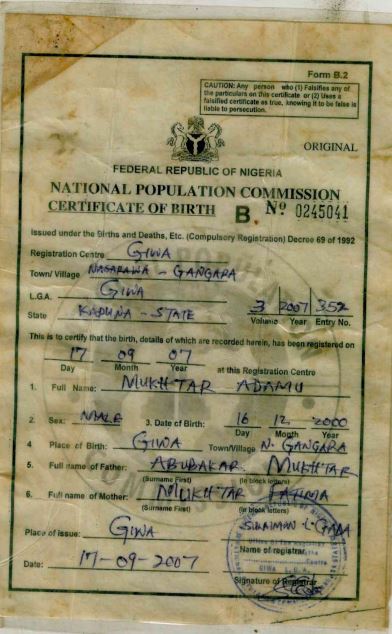 Form B.2
CAUTION: Any person who (1) Falsifies any of
the particulars on this certificate or (2) Uses a
falsified certificate as true, knowing it to be false is
liable to persecution.
ORIGINAL
FEDERAL REPUBLIC OF NIGERIA
NATIONAL POPULATION COMMISSION
CERTIFICATE OF BIRTH B. Nº 0245041
Issued under the Births and Deaths, Etc. (Compulsory Registration) Decree 69 of 1992
Registration Centre GIWA
Town/ Village NASARAWA - GANGARA
L.G.A. GIWA 3 2007 352
State KADUNA - STATE Volume Year Entry No.
This is to certify that the birth, details of which are recorded herein, has been registered on
17 09 07
Day Month Year at this Registration Centre
1. Full Name: MUKHTAR ADAMU
2. Sex: MALE 3. Date of Birth: 16 12 2000
Day Month Year
4 Place of Birth: GIWA Town/Village N. GANGARA
5. Full name of Father: ABUBAKAR MUKHTAR
(Surname First) (In block letters)
6. Full name of Mother: MUKHTAR FATIMA
(Surname First) (In block letters)
Place of issue: GIWA
Name of registrar
Date: 17-09-2007
GIWA L.G.A.
Signature of Registrar